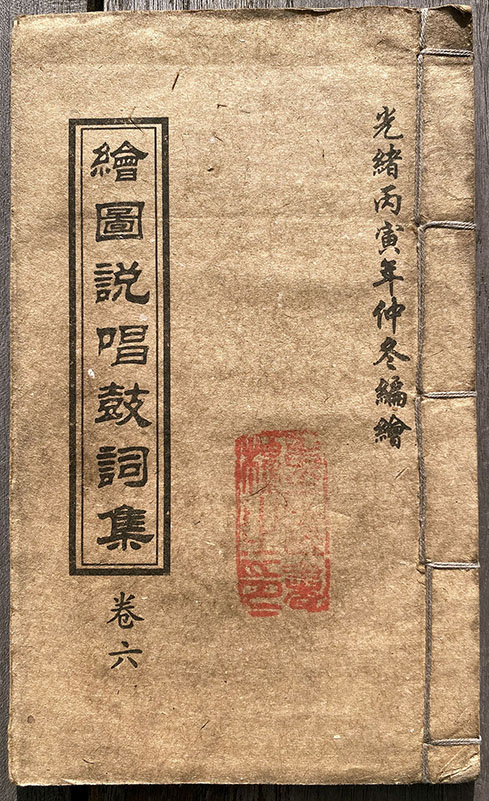 光緒丙寅年仲冬編繪
繪圖説唱鼓詞集
卷六